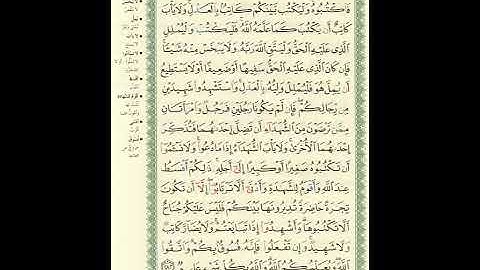 فَٱكْتُبُوهُ وَلْيَكْتُب بَّيْنَكُمْ كَاتِبٌۢ بِٱلْعَدْلِ وَلَا يَأْبَ
كَاتِبٌ أَن يَكْتُبَ كَمَا عَلَّمَهُ ٱللَّهُ فَلْيَكْتُبْ وَلْيُمْلِلِ
ٱلَّذِى عَلَيْهِ ٱلْحَقُّ وَلْيَتَّقِ ٱللَّهَ رَبَّهُۥ وَلَا يَبْخَسْ مِنْهُ شَيْـًٔا
فَإِن كَانَ ٱلَّذِى عَلَيْهِ ٱلْحَقُّ سَفِيهًا أَوْ ضَعِيفًا أَوْ لَا يَسْتَطِيعُ
أَن يُمِلَّ هُوَ فَلْيُمْلِلْ وَلِيُّهُۥ بِٱلْعَدْلِ وَٱسْتَشْهِدُوا۟ شَهِيدَيْنِ
مِن رِّجَالِكُمْ فَإِن لَّمْ يَكُونَا رَجُلَيْنِ فَرَجُلٌ وَٱمْرَأَتَانِ
مِمَّن تَرْضَوْنَ مِنَ ٱلشُّهَدَآءِ أَن تَضِلَّ إِحْدَىٰهُمَا فَتُذَكِّرَ
إِحْدَىٰهُمَا ٱلْأُخْرَىٰ وَلَا يَأْبَ ٱلشُّهَدَآءُ إِذَا مَا دُعُوا۟ وَلَا تَسْـَٔمُوٓا۟
أَن تَكْتُبُوهُ صَغِيرًا أَوْ كَبِيرًا إِلَىٰٓ أَجَلِهِۦ ذَٰلِكُمْ أَقْسَطُ
عِندَ ٱللَّهِ وَأَقْوَمُ لِلشَّهَٰدَةِ وَأَدْنَىٰٓ أَلَّا تَرْتَابُوٓا۟ إِلَّآ أَن تَكُونَ
تِجَٰرَةً حَاضِرَةً تُدِيرُونَهَا بَيْنَكُمْ فَلَيْسَ عَلَيْكُمْ جُنَاحٌ
أَلَّا تَكْتُبُوهَا وَأَشْهِدُوٓا۟ إِذَا تَبَايَعْتُمْ وَلَا يُضَآرَّ كَاتِبٌ
وَلَا شَهِيدٌ وَإِن تَفْعَلُوا۟ فَإِنَّهُۥ فُسُوقٌۢ بِكُمْ وَٱتَّقُوا۟
ٱللَّهَ وَيُعَلِّمُكُمُ ٱللَّهُ وَٱللَّهُ بِكُلِّ شَىْءٍ عَلِيمٌ